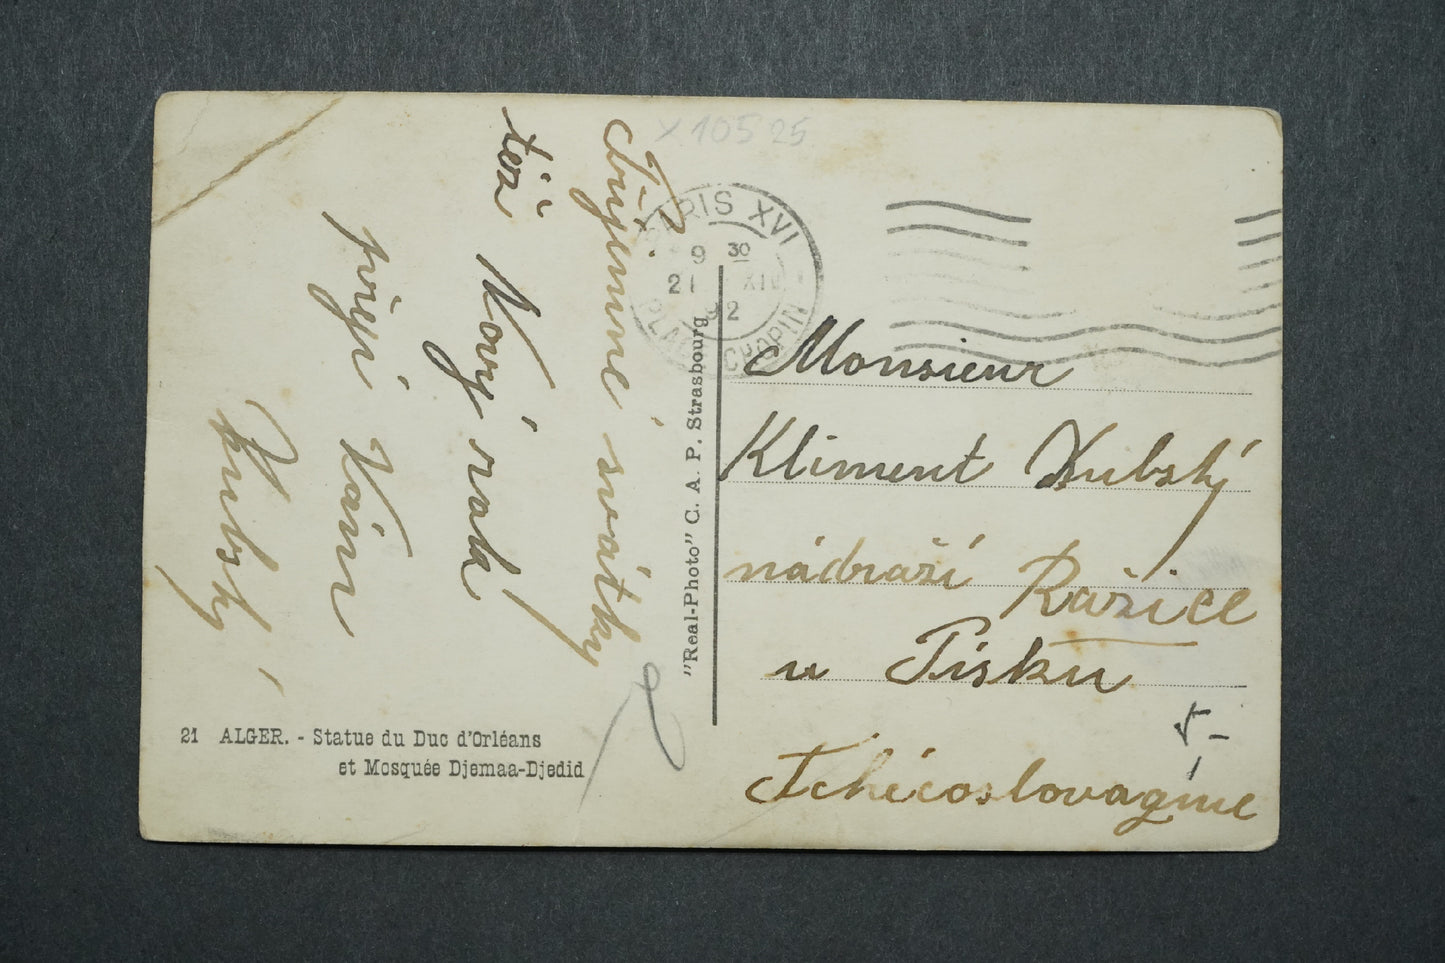 x 10525
PARIS XVI
9 30
21 XII
32
PLACE CHOPIN
Příjemné svátky
též Nový rok
přeji Vám
Kubský
Monsieur
Kliment Kubský
nádraží Ražice
u Písku
Tchécoslovaquie
5-
"Real-Photo" C. A. P. Strasbourg
21 ALGER. - Statue du Duc d'Orléans
et Mosquée Djemaa-Djedid